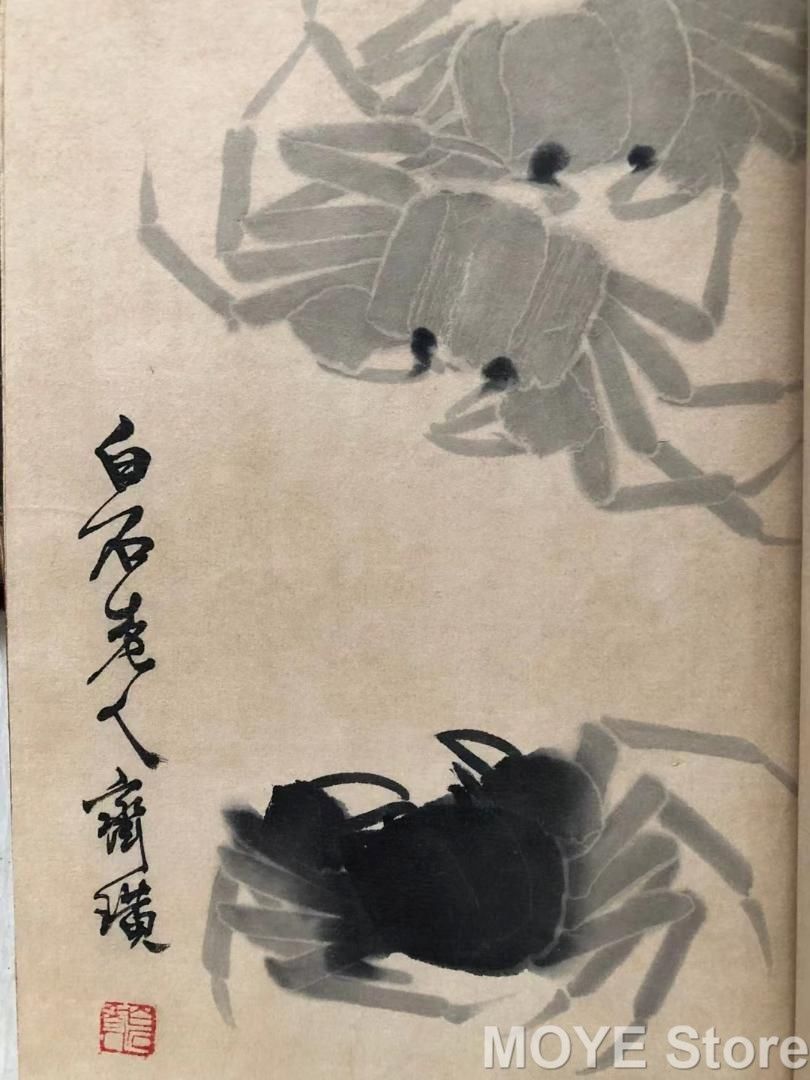 白石老人齊璜
MOYE Store